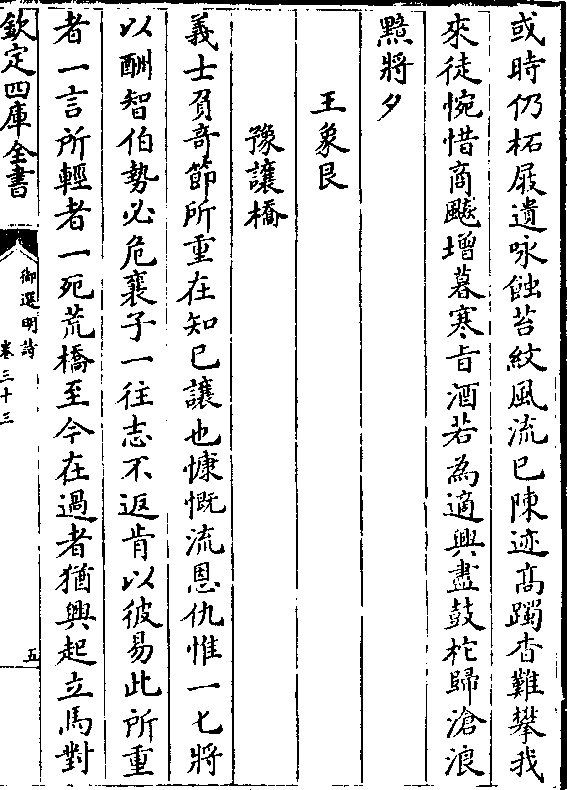 或時仍柘屐遺咏蝕苔紋風流已陳迹髙躅杳難攀我
來徒惋惜商飈增暮寒㫖酒若為適興盡鼓柁歸滄浪
黯將夕
王象艮
豫讓橋
義士負竒節所重在知己讓也慷慨流恩仇惟一匕將
以酬智伯勢必危襄子一往志不返肯以彼易此所重
者一言所輕者一死荒橋至今在過者猶興起立馬對
欽定四庫全書
御選明詩
卷三十三
五